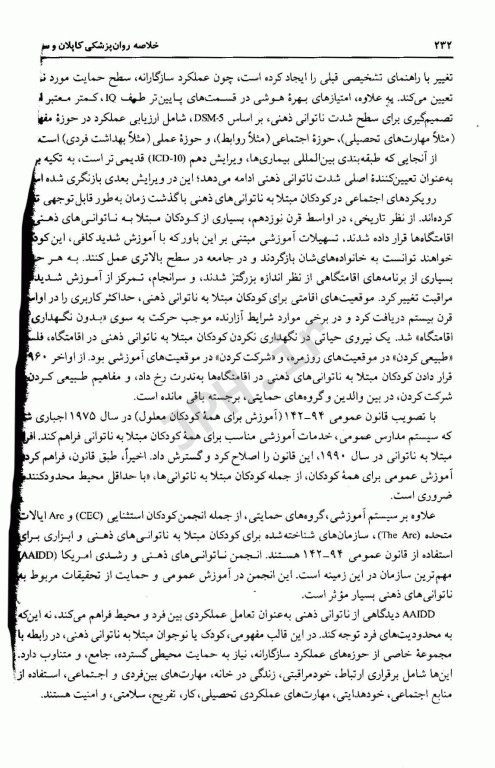 ۲۳۲
خلاصه روان‌پزشکی کاپلان و
تغییر با راهنمای تشخیصی قبلی را ایجاد کرده است، چون عملکرد سازگارانه، سطح حمایت مورد
تعیین می‌کند. به علاوه، امتیازهای بهرهٔ هوشی در قسمت‌های پایین‌تر طیف IQ، کمتر معتبر
تصمیم‌گیری برای سطح شدت ناتوانی ذهنی، بر اساس DSM-5، شامل ارزیابی عملکرد در حوزهٔ
(مثلاً مهارت‌های تحصیلی)، حوزهٔ اجتماعی (مثلاً روابط)، و حوزهٔ عملی (مثلاً بهداشت فردی) است.
از آنجایی که طبقه‌بندی بین‌المللی بیماری‌ها، ویرایش دهم (ICD-10) قدیمی‌تر است، به تکیه
به‌عنوان تعیین‌کنندهٔ اصلی شدت ناتوانی ذهنی ادامه می‌دهد؛ این در ویرایش بعدی بازنگری شده
رویکردهای اجتماعی در کودکان مبتلا به ناتوانی‌های ذهنی با گذشت زمان به‌طور قابل توجهی
کرده‌اند. از نظر تاریخی، در اواسط قرن نوزدهم، بسیاری از کودکان مبتلا به ناتوانی‌های ذهنی
اقامتگاه‌ها قرار داده شدند. تسهیلات آموزشی مبتنی بر این باور که با آموزش شدید کافی، این
خواهند توانست به خانواده‌های‌شان بازگردند و در جامعه در سطح بالاتری عمل کنند. به هر
بسیاری از برنامه‌های اقامتگاهی از نظر اندازه بزرگتر شدند، و سرانجام، تمرکز از آموزش شدید
مراقبت تغییر کرد. موقعیت‌های اقامتی برای کودکان مبتلا به ناتوانی ذهنی، حداکثر کاربری را در
قرن بیستم دریافت کرد و در برخی موارد شرایط آزارنده موجب حرکت به سوی «بدون نگهداری
اقامتگاه» شد. یک نیروی حیاتی در نگهداری نکردن کودکان مبتلا به ناتوانی ذهنی در اقامتگاه،
«طبیعی کردن» در موقعیت‌های روزمره، و «شرکت کردن» در موقعیت‌های آموزشی بود. از اواخر
قرار دادن کودکان مبتلا به ناتوانی‌های ذهنی در اقامتگاه‌ها به‌ندرت رخ داد، و مفاهیم طبیعی کردن
شرکت کردن، در بین والدین و گروه‌های حمایتی، برجسته باقی مانده است.
با تصویب قانون عمومی ۹۴-۱۴۲ (آموزش برای همهٔ کودکان معلول) در سال ۱۹۷۵ اجباری
که سیستم مدارس عمومی، خدمات آموزشی مناسب برای همهٔ کودکان مبتلا به ناتوانی فراهم کند.
مبتلا به ناتوانی در سال ۱۹۹۰، این قانون را اصلاح کرد و گسترش داد. اخیراً، طبق قانون، فراهم
آموزش عمومی برای همهٔ کودکان، از جمله کودکان مبتلا به ناتوانی‌ها، «با حداقل محیط محدودکننده
ضروری است.
علاوه بر سیستم آموزشی، گروه‌های حمایتی، از جمله انجمن کودکان استثنایی (CEC) و Arc ایالات
متحده (The Arc)، سازمان‌های شناخته‌شده برای کودکان مبتلا به ناتوانی‌های ذهنی و ابزاری برای
استفاده از قانون عمومی ۹۴-۱۴۲ هستند. انجمن ناتوانی‌های ذهنی و رشدی امریکا (AAIDD)
مهم‌ترین سازمان در این زمینه است. این انجمن در آموزش عمومی و حمایت از تحقیقات مربوط به
ناتوانی‌های ذهنی بسیار مؤثر است.
AAIDD دیدگاهی از ناتوانی ذهنی به‌عنوان تعامل عملکردی بین فرد و محیط فراهم می‌کند، نه این‌که
به محدودیت‌های فرد توجه کند. در این قالب مفهومی، کودک یا نوجوان مبتلا به ناتوانی ذهنی، در رابطه با
مجموعهٔ خاصی از حوزه‌های عملکرد سازگارانه، نیاز به حمایت محیطی گسترده، جامع، و متناوب دارد.
این‌ها شامل برقراری ارتباط، خودمراقبتی، زندگی در خانه، مهارت‌های بین‌فردی و اجتماعی، استفاده از
منابع اجتماعی، خودهدایتی، مهارت‌های عملکردی تحصیلی، کار، تفریح، سلامتی، و امنیت هستند.